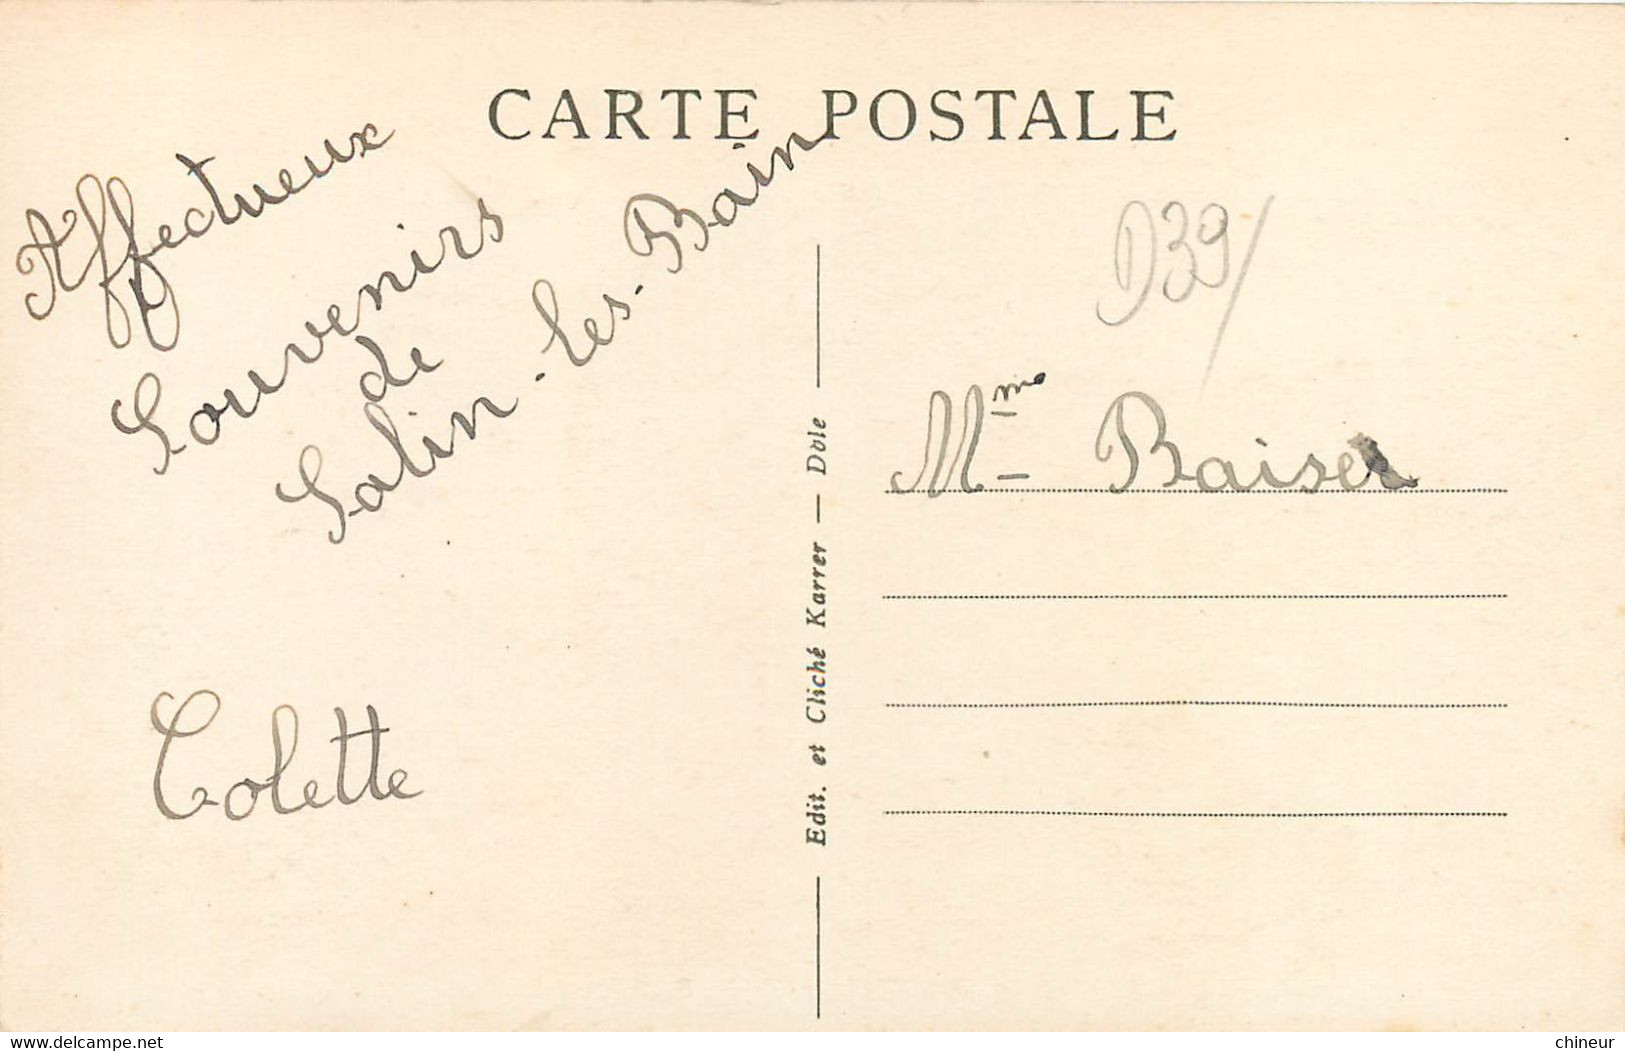 CARTE POSTALE
Affectueux
Souvenirs
de
Salin-les-Bain
Colette
Edit. et Cliché Karrer — Dole
D39/
Mme Baiser
delcampe.net
chineur